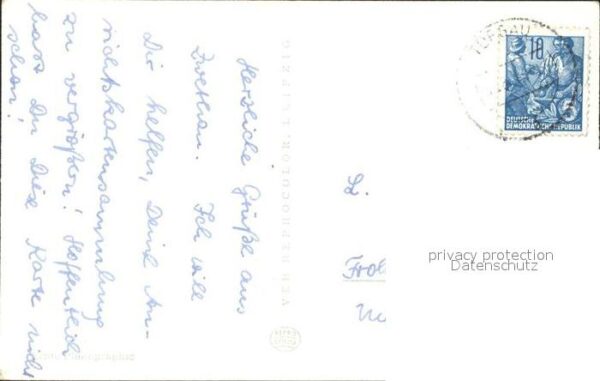 Herzliche Grüße aus
Zwethau. Ich will
Dir helfen, Deine An-
sichtskartensammlung
zu vergrößern! Hoffentlich
hast Du diese Karte nicht
schon!
VEB REPROCOLOR LEIPZIG
TORGAU
10
DEUTSCHE
DEMOKRATISCHE REPUBLIK
privacy protection
Datenschutz